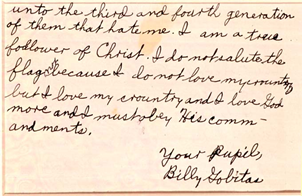 unto the third and fourth generation
of them that hate me. I am a true
follower of Christ. I do not salute the
flag not because I do not love my country
but I love my crountry and I love God
more and I must obey His comm-
andments.
Your Pupil,
Billy Gobitas